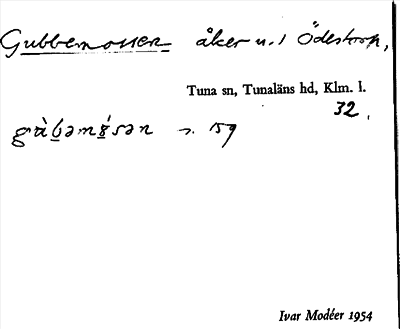 Gubbemossen åker u. 1 Ödestorp,
Tuna sn, Tunaläns hd, Klm. l.
32.
59
Ivar Modéer 1954